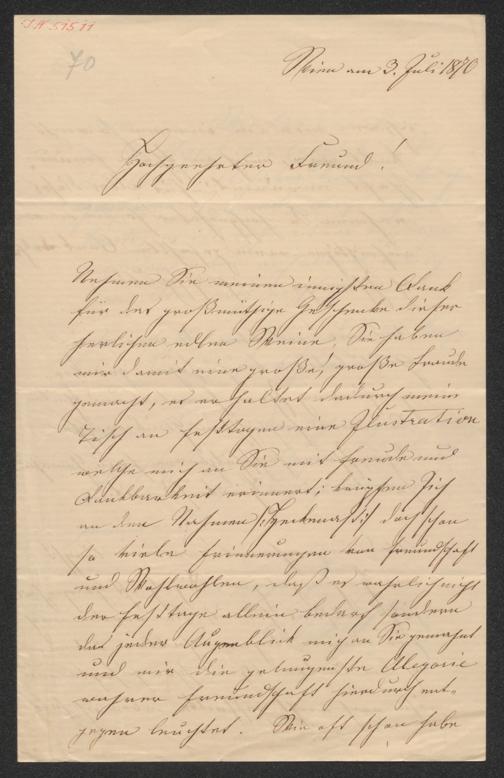 I.N. 51511
70
Wien am 3. Juli 1870
Hochgeehrter Freund!
Nehmen Sie meinen innigsten Dank
für das großmüthige Geschenke dieser
herlichen edlen Weine, Sie haben
mir damit eine große, große Freude
gemacht, es erhaltet dadurch mein
Tisch an Festtagen eine Ilustration
welche mich an Sie mit Freude und
Dankbarkeit erinnert; knüpfen sich
an den Nahmen Heckenast doch schon
so viele Erinnerungen von Freundschaft
und Wohlwohlen, daß es wahrlich nicht
der Festtage allein bedarf sondern
das jeder Augenblick mich an Sie gemahnt
und mir die gelungenste Alegorie
wahrer Freundschaft hierdurch ent-
gegen leuchtet. Wie oft schon habe